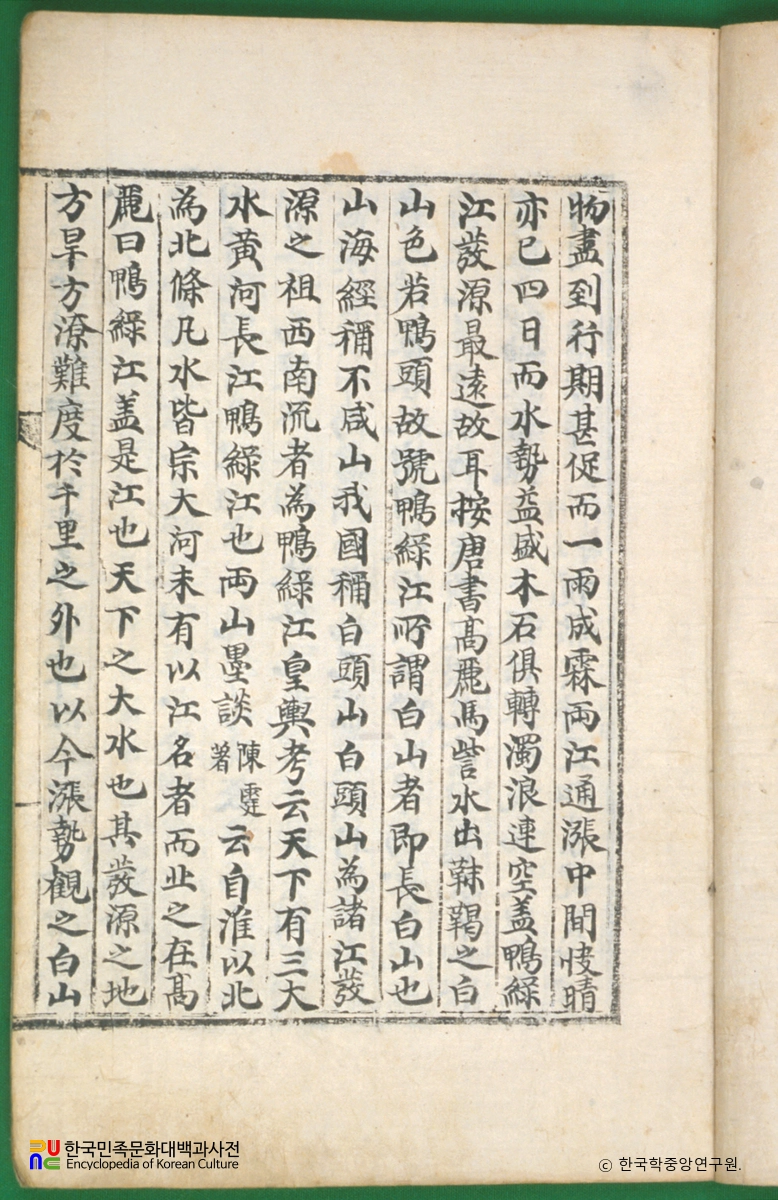 物盡到行期甚促而一雨成霖両江通漲中間快晴
亦已四日而水勢益盛木石俱轉濁浪連空盖鴨綠
江發源最遠故耳按唐書高麗馬訾水出靺鞨之白
山色若鴨頭故號鴨綠江所謂白山者即長白山也
山海經稱不咸山我國稱白頭山白頭山為諸江發
源之祖西南流者為鴨綠江皇輿考云天下有三大
水黃河長江鴨綠江也両山墨談陳霆著云自淮以北
為北條凡水皆宗大河未有以江名者而北之在高
麗曰鴨綠江盖是江也天下之大水也其發源之地
方旱方潦難度於千里之外也以今漲勢觀之白山
한국민족문화대백과사전
Encyclopedia of Korean Culture
ⓒ 한국학중앙연구원.